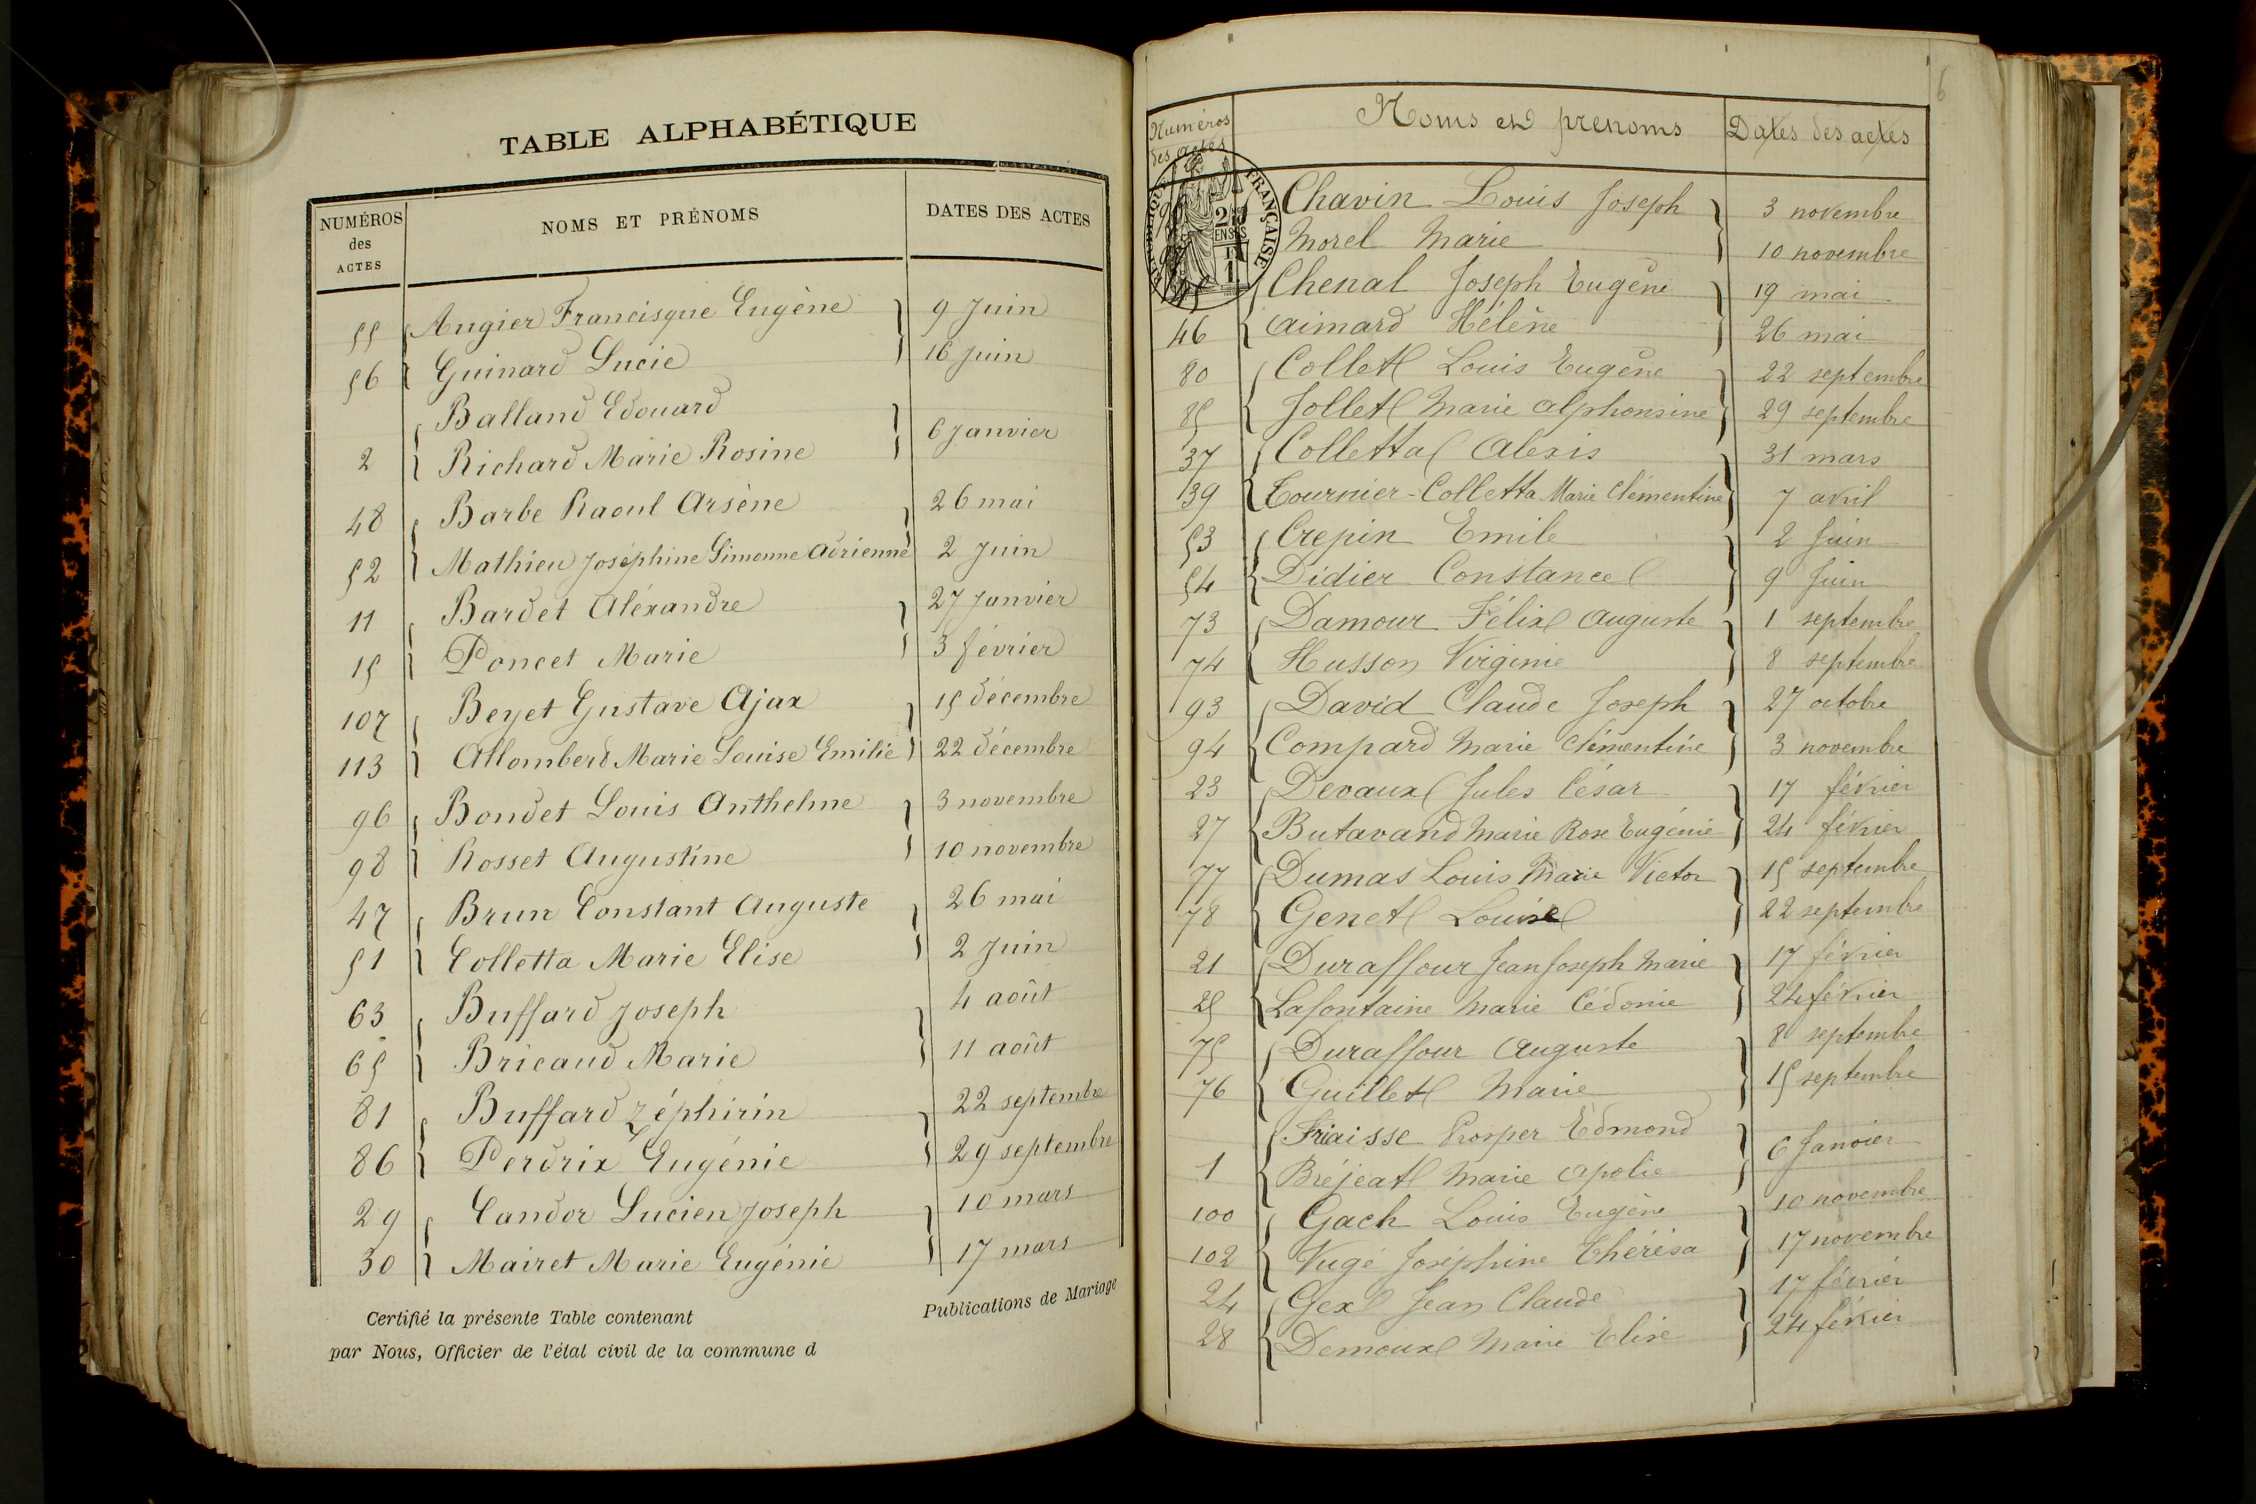 TABLE ALPHABÉTIQUE
NUMÉROS des ACTES NOMS ET PRÉNOMS DATES DES ACTES
55 Augier Francisque Eugène 9 Juin
56 Guinard Lucie 16 Juin
Balland Edouard
2 Richard Marie Rosine 6 Janvier
48 Barbe Raoul Arsène 26 mai
52 Mathieu Joséphine Simonne Adrienne 2 Juin
11 Bardet Aléxandre 27 Janvier
15 Poncet Marie 3 février
107 Beyet Gustave Ajax 15 décembre
113 Allomberd Marie Louise Emilie 22 décembre
96 Bondet Louis Anthelme 3 novembre
98 Rosset Augustine 10 novembre
47 Brun Constant Auguste 26 mai
51 Colletta Marie Elise 2 Juin
63 Buffard Joseph 4 août
65 Bricaud Marie 11 août
81 Buffard Zéphirin 22 septembre
86 Perdrix Eugénie 29 septembre
29 Candor Lucien Joseph 10 mars
30 Mairet Marie Eugénie 17 mars
Certifié la présente Table contenant Publications de Mariage
par Nous, Officier de l'état civil de la commune d
6
Numéros des actes Noms et prenoms Dates des actes
FRANÇAISE
Chavin Louis Joseph 3 novembre
Morel Marie 10 novembre
Chenal Joseph Eugène 19 mai
46 Aimard Hélène 26 mai
80 Collet Louis Eugène 22 septembre
85 Jollet Marie Alphonsine 29 septembre
37 Colletta Alexis 31 mars
39 Tournier-Colletta Marie Clémentine 7 avril
53 Crepin Emile 2 Juin
54 Didier Constance 9 Juin
73 Damour Félix Auguste 1 septembre
74 Husson Virginie 8 septembre
93 David Claude Joseph 27 octobre
94 Compard Marie Clémentine 3 novembre
23 Devaux Jules César 17 février
27 Butavand Marie Rose Eugénie 24 février
77 Dumas Louis Marie Victor 15 septembre
78 Genet Louise 22 septembre
21 Duraffour Jean Joseph Marie 17 février
25 Lafontaine Marie Cédonie 24 février
75 Duraffour Auguste 8 septembre
76 Guillet Marie 15 septembre
Friaisse Prosper Edmond
1 Bréjeat Marie Apolie 6 Janvier
100 Gach Louis Eugène 10 novembre
102 Vugé Joséphine Thérésa 17 novembre
24 Gex Jean Claude 17 février
28 Demoux Marie Elise 24 février